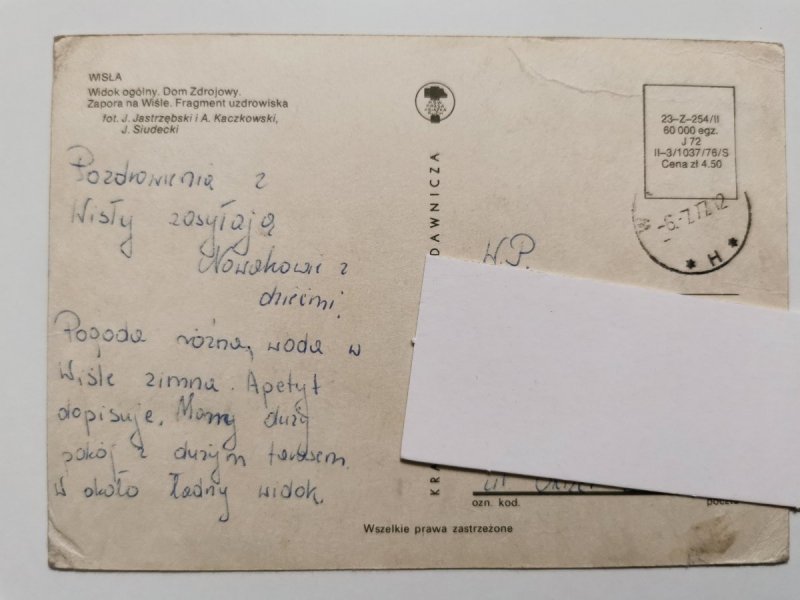 WISŁA
Widok ogólny. Dom Zdrojowy.
Zapora na Wiśle. Fragment uzdrowiska
fot. J. Jastrzębski i A. Kaczkowski,
J. Siudecki
23–Z–254/II
60 000 egz.
J 72
II–3/1037/76/S
Cena zł 4.50
-6.-7.77.12
* H *
Pozdrowienia z
Wisły zasyłają
Nowakowie z
dziećmi.
Pogoda różna, woda w
Wiśle zimna. Apetyt
dopisuje. Mamy duży
pokój z dużym tarasem.
W około ładny widok.
KRA
DAWNICZA
W.P.
ozn. kod.
poczta
Wszelkie prawa zastrzeżone